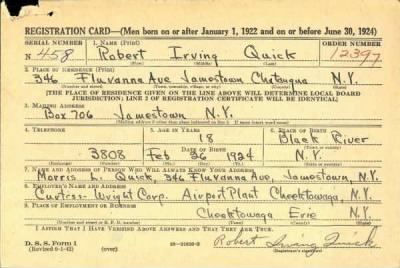 REGISTRATION CARD—(Men born on or after January 1, 1922 and on or before June 30, 1924)
SERIAL NUMBER 1. NAME (Print) ORDER NUMBER
N 458 Robert Irving Quick 12397
(First) (Middle) (Last)
2. PLACE OF RESIDENCE (Print)
346 Fluvanna Ave Jamestown Chatauqua N.Y.
(Number and street) (Town, township, village, or city) (County) (State)
[THE PLACE OF RESIDENCE GIVEN ON THE LINE ABOVE WILL DETERMINE LOCAL BOARD
JURISDICTION; LINE 2 OF REGISTRATION CERTIFICATE WILL BE IDENTICAL]
3. MAILING ADDRESS
Box 706 Jamestown N.Y.
[Mailing address if other than place indicated on line 2. If same insert word same]
4. TELEPHONE 5. AGE IN YEARS 6. PLACE OF BIRTH
18 Black River
3808 Feb 26 1924 N.Y.
7. NAME AND ADDRESS OF PERSON WHO WILL ALWAYS KNOW YOUR ADDRESS
Morris L. Quick, 346 Fluvanna Ave, Jamestown, N.Y.
8. EMPLOYER'S NAME AND ADDRESS
Curtiss-Wright Corp. Airport Plant Cheektowaga, N.Y.
9. PLACE OF EMPLOYMENT OR BUSINESS
Cheektowaga Erie N.Y.
(Number and street or R. F. D. number) (Town) (County) (State)
I AFFIRM THAT I HAVE VERIFIED ABOVE ANSWERS AND THAT THEY ARE TRUE.
D. S. S. Form 1
(Revised 6-9-42) (over) Robert Irving Quick
(Registrant's signature)